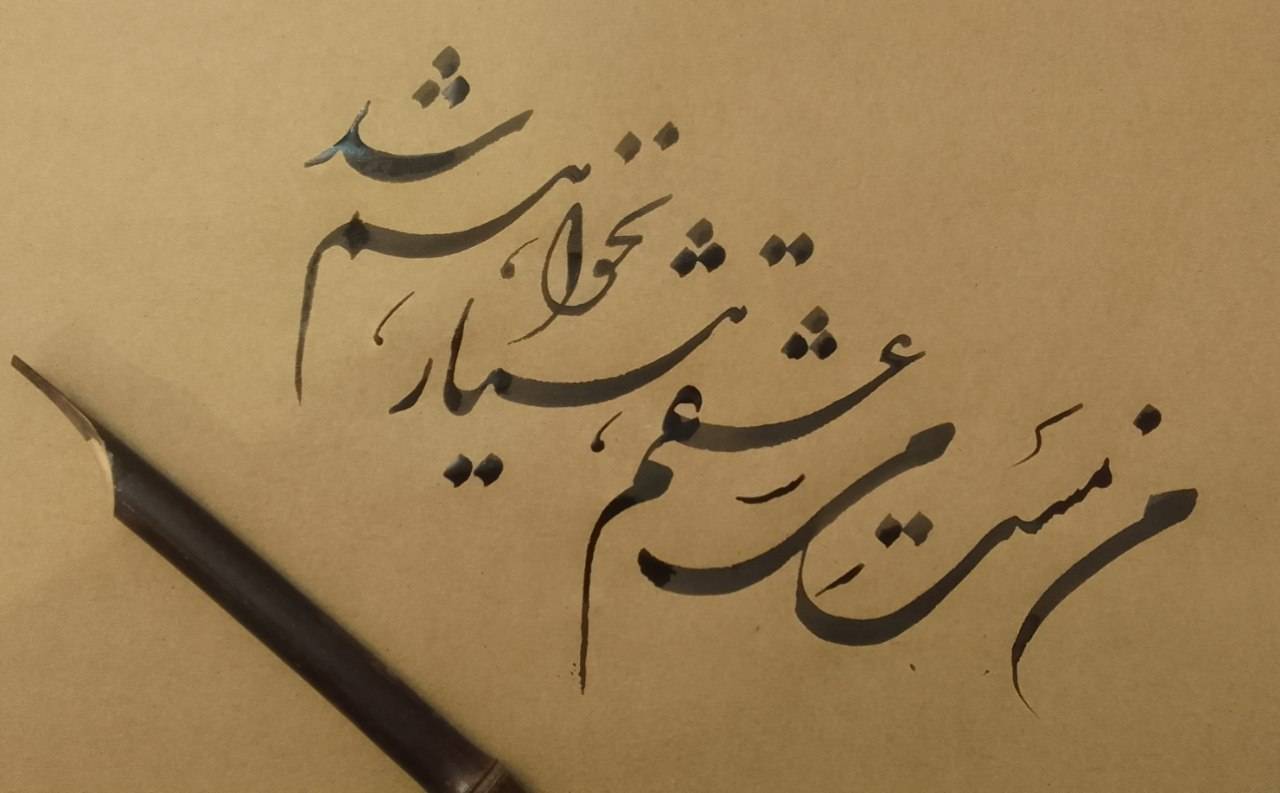 من مست می عشقم هشیار نخواهم شد